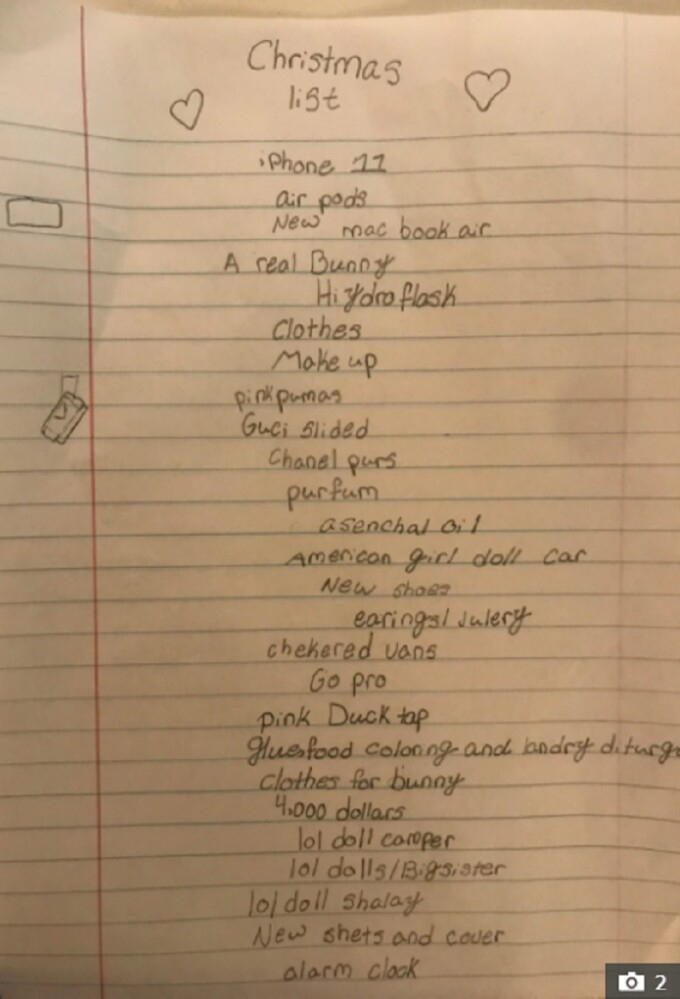 Christmas
list
iPhone 11
air pods
New mac book air
A real Bunny
Hiydroflask
Clothes
Make up
pinkpumas
Guci slided
Chanel purs
purfum
asenchal oil
American girl doll car
New shoes
earings/julery
chekered vans
Go pro
pink Duck tap
glue,food coloring and landry diturg
Clothes for bunny
4,000 dollars
lol doll camper
lol dolls/Bigsister
lol doll shalay
New shets and cover
alarm clock
2